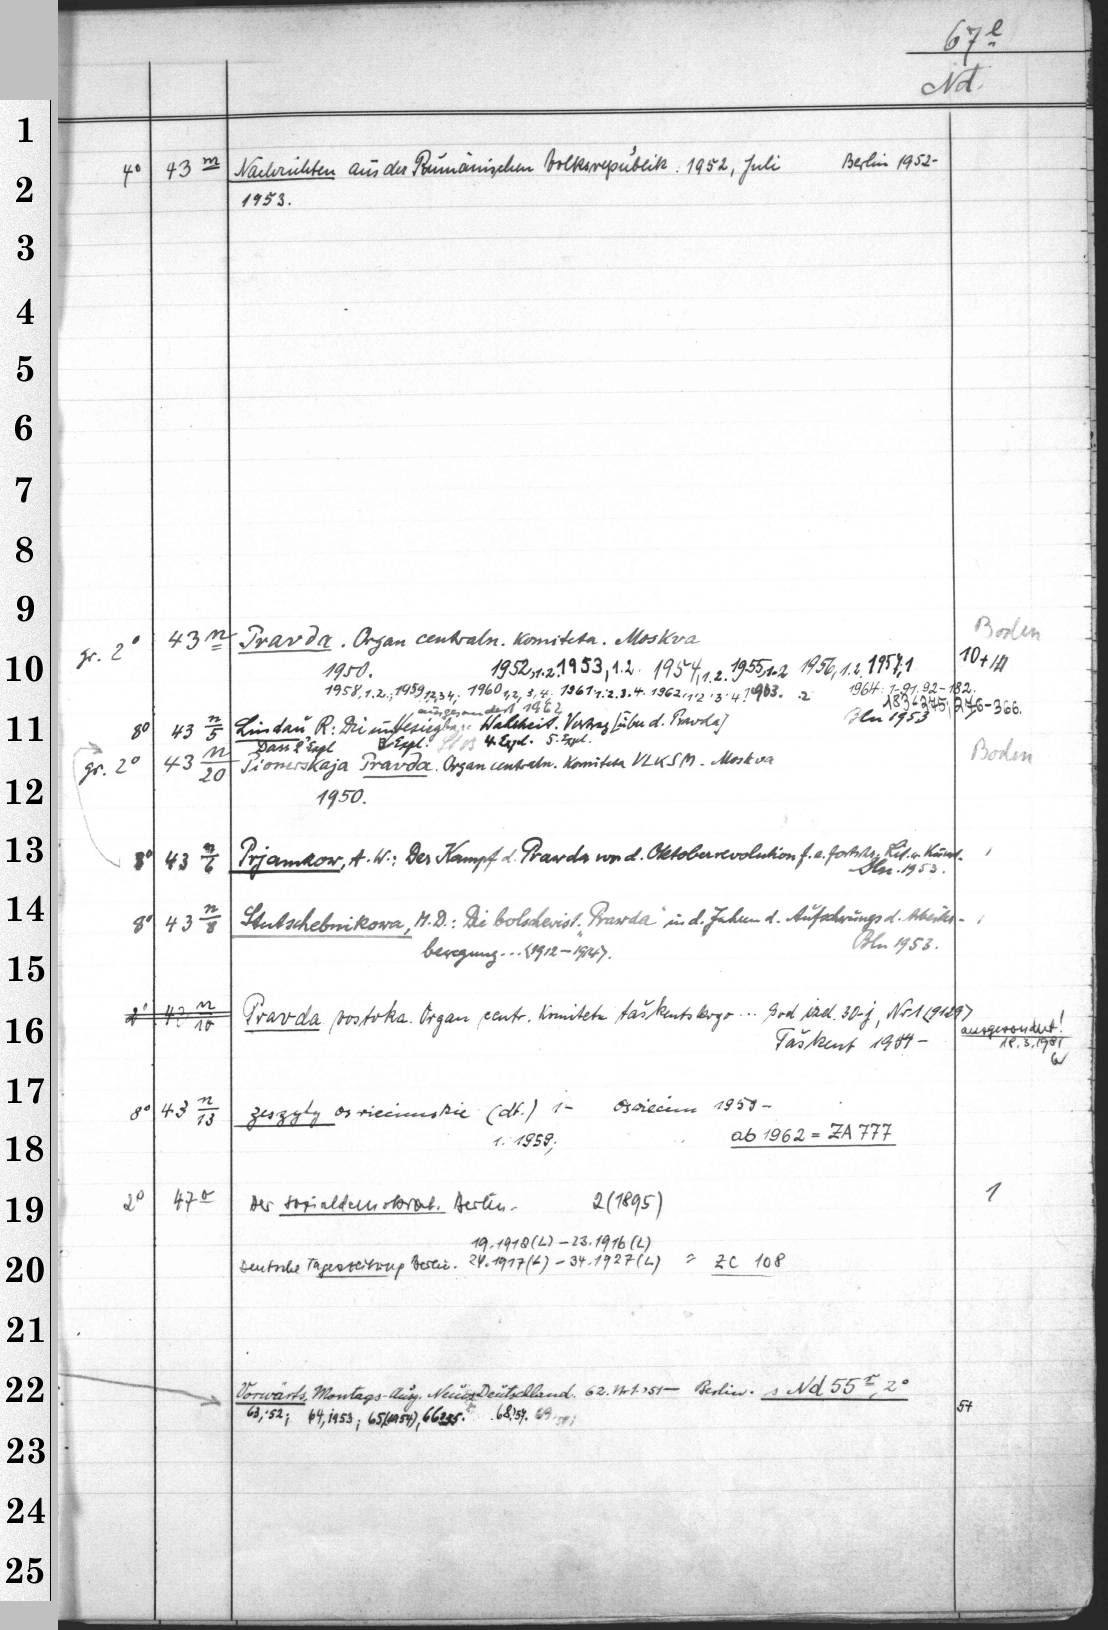 67 l
Nd.
1
4° 43 m Nachrichten aus der Rumänischen Volksrepublik. 1952, Juli Berlin 1952-
2
1953.
3
4
5
6
7
8
9
gr. 2° 43 n Pravda. Organ centraln. Komiteta. Moskva Boden
10
1950. 1952,1.2. 1953,1.2. 1954,1.2. 1955,1.2 1956,1.2. 1957,1 10+
1958,1.2.; 1959,1.2,3,4; 1960,1,2,3,4. 1961,1.2.3.4. 1962,1.2.3.4. 1963. 2 1964: 1-91. 92-182.
183-275, 276-366.
ausgesondert 1962
11
8° 43 n/5 Lindau, R: Die unbesiegbare Wahrheit. Vortrag [über d. Pravda] Bln 1953
Dass. 2. Expl. 3. Expl. 4. Expl. 5. Expl.
gr. 2° 43 n/20 Pionerskaja Pravda. Organ centraln. Komiteta VLKSM. Moskva Boden
12
1950.
13
8° 43 n/6 Prjamkow, A. W.: Der Kampf d. Prawda vor d. Oktoberrevolution f. e. fortschr. Lit. u. Kunst.
Bln. 1953.
14
8° 43 n/8 Stutschebnikowa, M. D.: Die bolschewist. "Prawda" in d. Jahren d. Aufschwungs d. Arbeiter-
bewegung... <1912-1914>. Bln 1953.
15
2° 43 n/10 Pravda vostoka. Organ centr. Komiteta taškentskogo ... God izd. 30-j, Nr 1 (9129)
16
Taškent 1954- ausgesondert!
18.3.1981
17
8° 43 n/13 Zeszyty oswiecimskie (dt.) 1- Oswiecim 1959-
18
1. 1959; ab 1962 = ZA 777
19
2° 47 o Der Sozialdemokrat. Berlin. 2 (1895) 1
19.1912(L) - 23.1916(L)
20
Deutsche Tageszeitung Berlin. 24.1917(L) - 34.1927(L) = ZC 108
21
22
Vorwärts. Montags-Ausg. Neues Deutschland. 62. Nr 1. 1951- Berlin. s Nd 55 r, 2°
63,52; 64,1953; 65(1954), 66 . 68.57. 5+
23
24
25